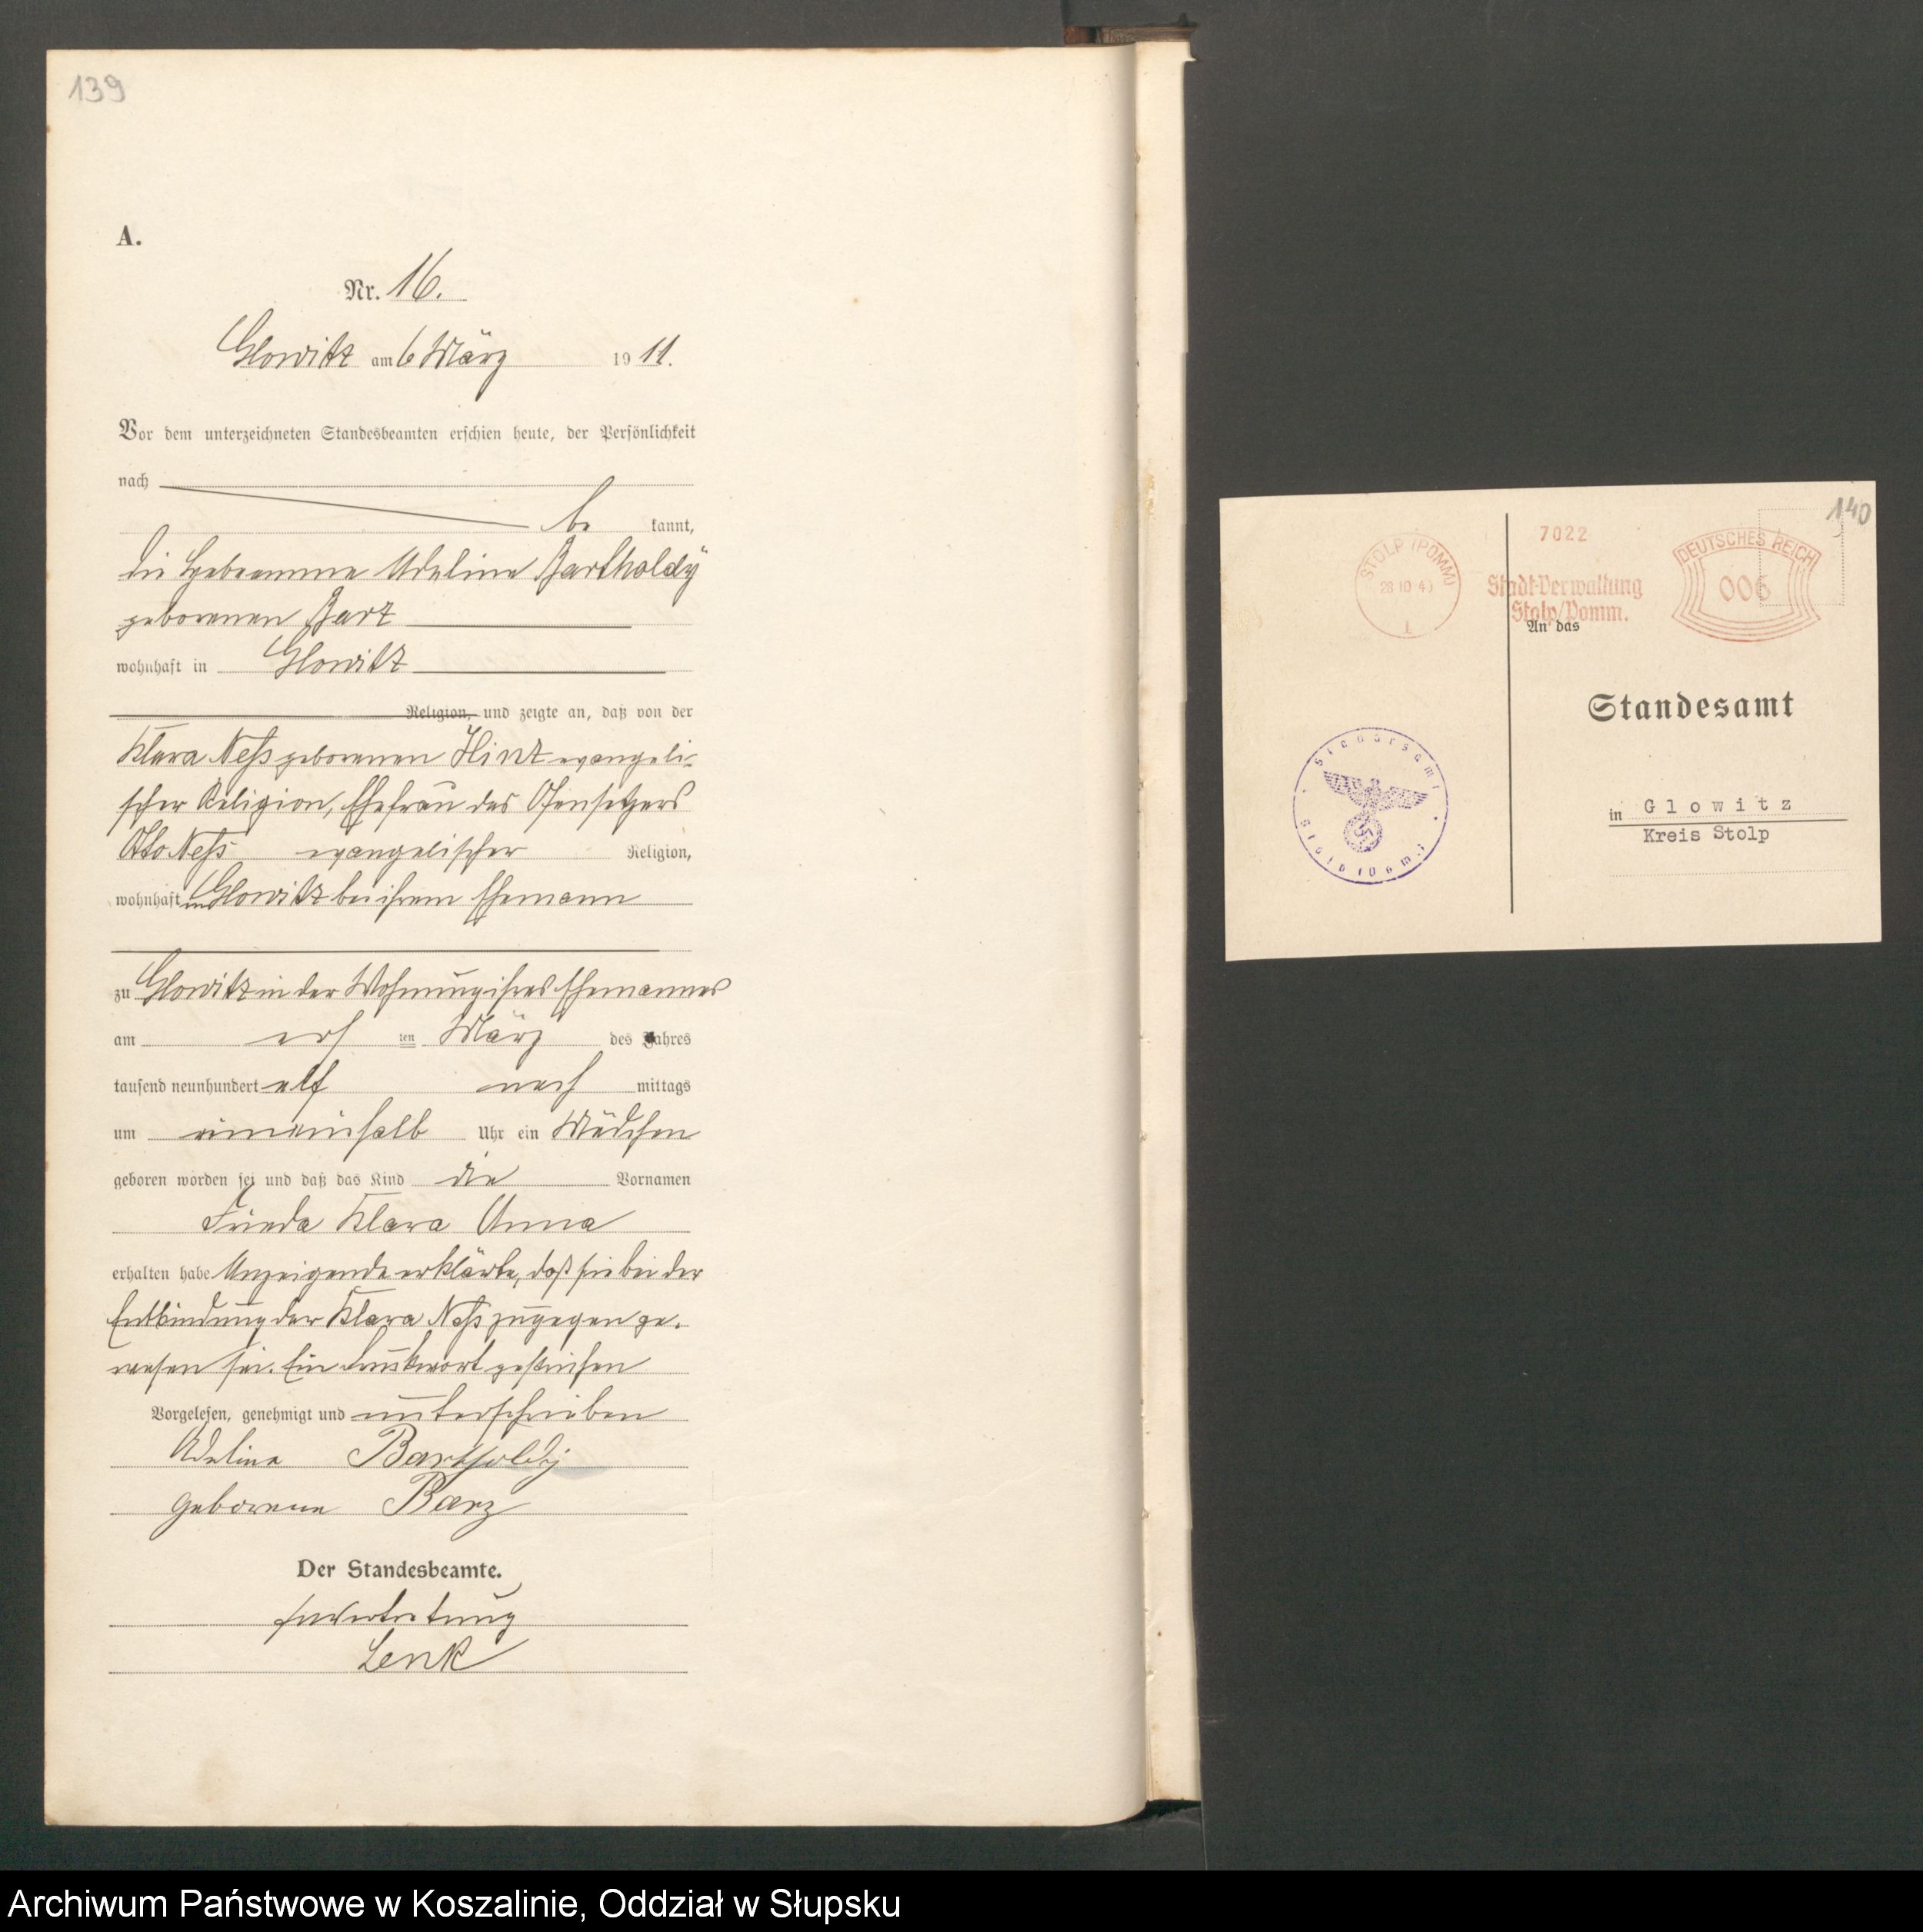 139
A.
Nr. 16.
Glowitz am 6 März 1911.
Vor dem unterzeichneten Standesbeamten erschien heute, der Persönlichkeit
nach
be kannt,
die Hebeamme Adeline Bartholdy
geborenen Barz
wohnhaft in Glowitz
Religion, und zeigte an, daß von der
Klara Neß geborenen Hinz evangeli-
scher Religion, Ehefrau des Ofensetzers
Otto Neß evangelischer Religion,
wohnhaft in Glowitz bei ihrem Ehemann
zu Glowitz in der Wohnung ihres Ehemannes
am ersten März des Jahres
tausend neunhundert elf nach mittags
um eineinhalb Uhr ein Mädchen
geboren worden sei und daß das Kind die Vornamen
Frieda Klara Anna
erhalten habe Anzeigende erklärte, daß sie bei der
Entbindung der Klara Neß zugegen ge-
wesen sei. Ein Druckwort gestrichen
Vorgelesen, genehmigt und unterschrieben
Adeline Bartholdy
geborene Barz
Der Standesbeamte.
In Vertretung
Lenk
140
7022
STOLP (POMM)
28 10 4
1
Stadt-Verwaltung
Stolp/Pomm.
DEUTSCHES REICH
006
An das
Standesamt
in Glowitz
Kreis Stolp
Standesamt
Stolp (Pom.)
Archiwum Państwowe w Koszalinie, Oddział w Słupsku